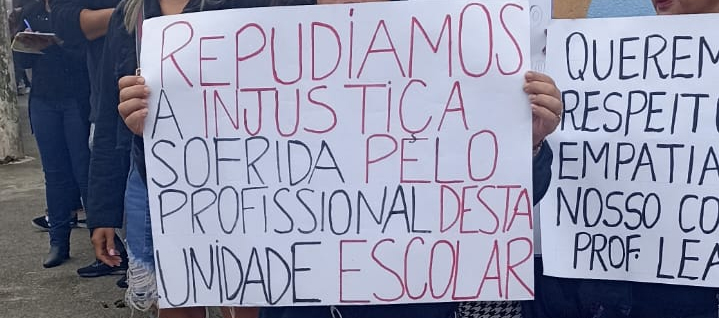 REPUDÍAMOS
A INJUSTIÇA
SOFRIDA PELO
PROFISSIONAL DESTA
UNIDADE ESCOLAR
QUEREM
RESPEIT
EMPATIA
NOSSO CO
PROF. LEA